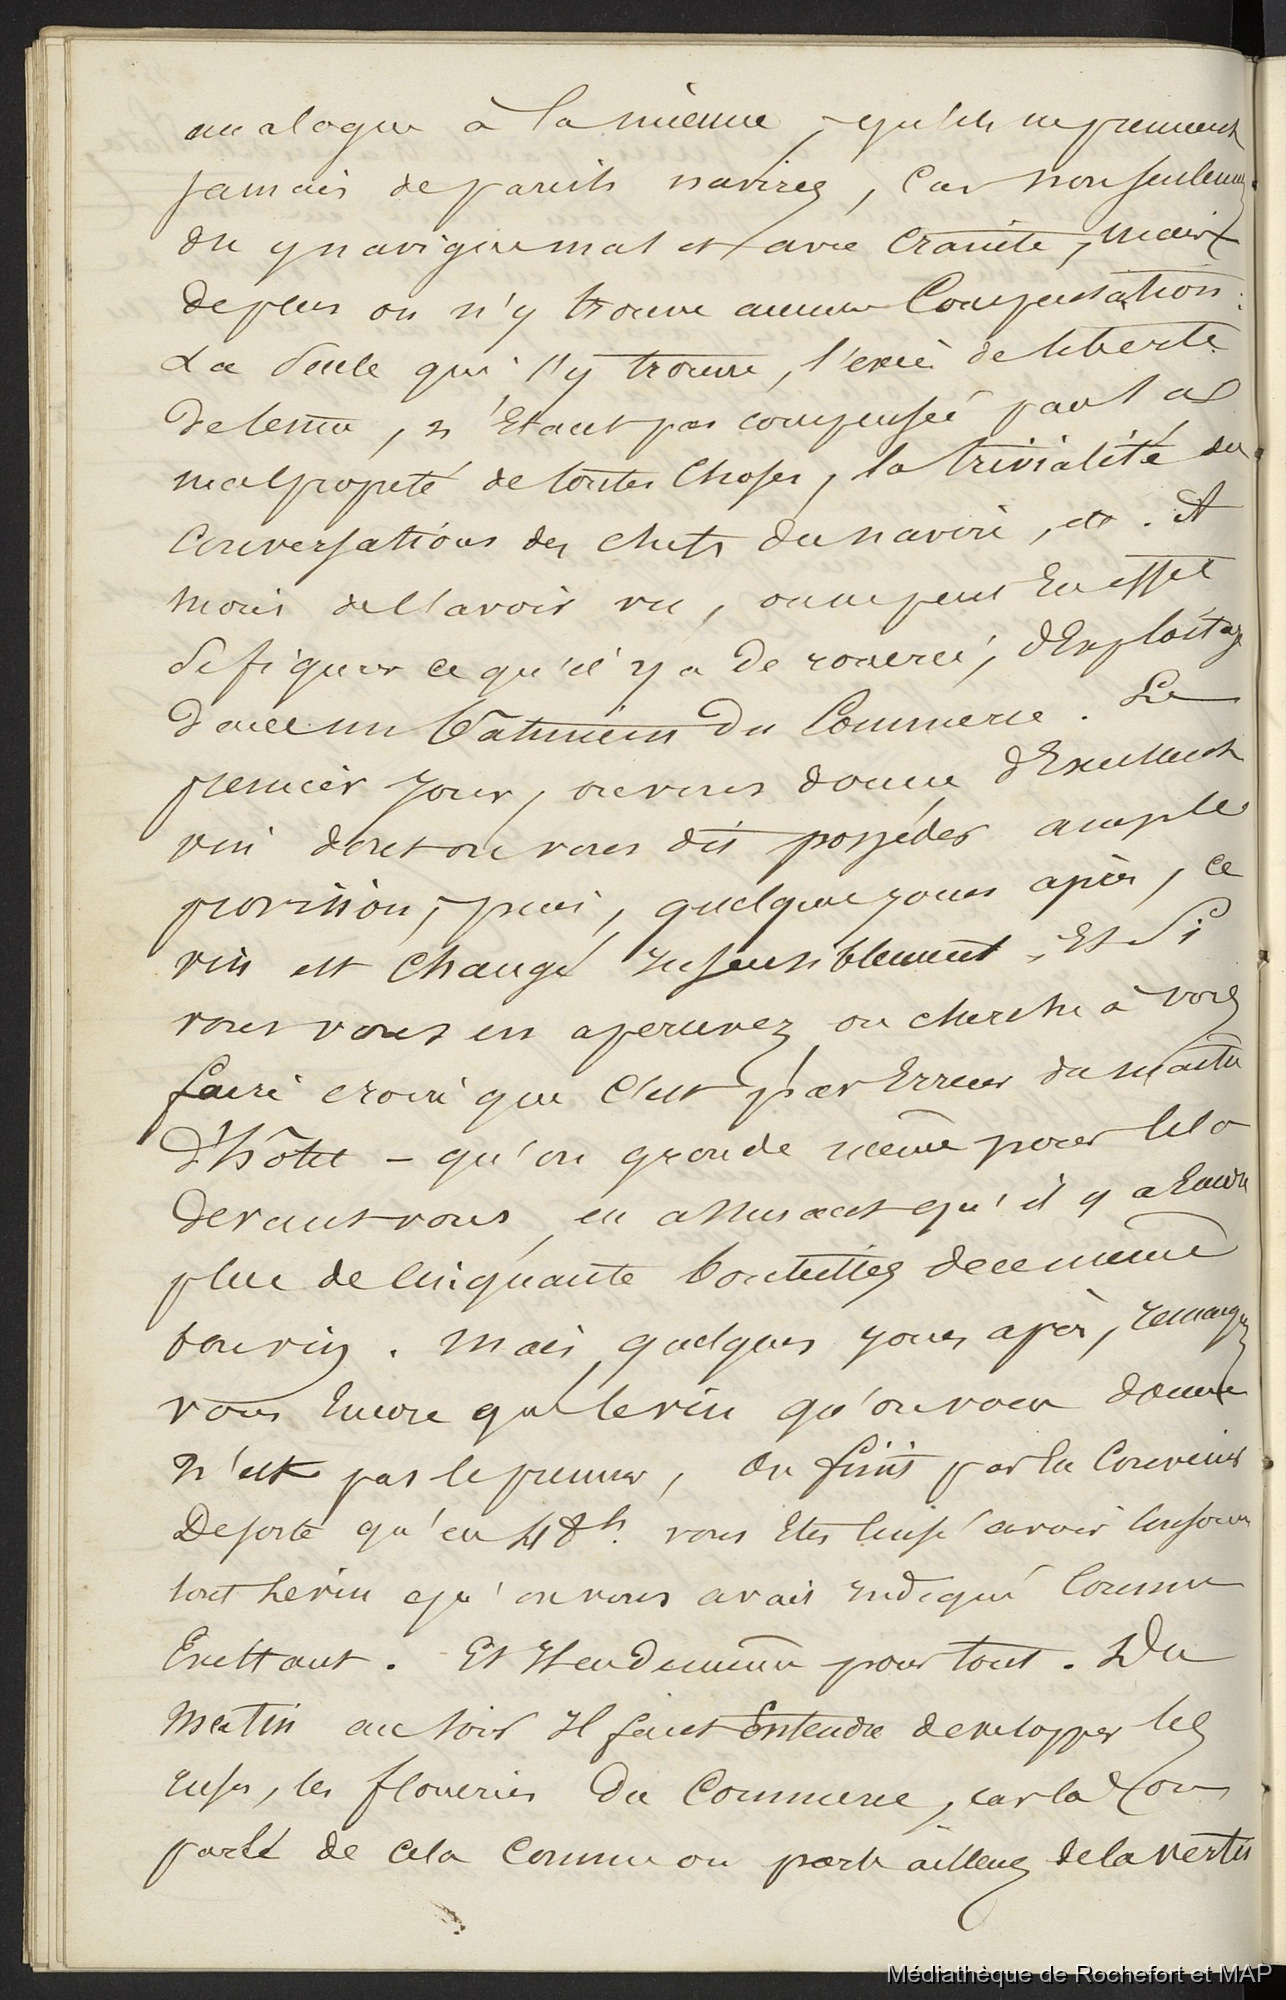 analogue à la mienne, qu'ils ne prennent
jamais de pareils navires, car non seulement
on y navigue mal et avec crainte, mais
de plus on n'y trouve aucune compensation.
La seule qui s'y trouve, l'excès de liberté
de tenue, n'étant pas compensée par la
malpropreté de toutes choses, la trivialité des
conversations des chefs du navire, etc. A
moins de l'avoir vu, on ne peut en effet
se figurer ce qu'il y a de rouerie, d'exploitage
dans un bâtiment du commerce. Le
premier jour, on vous donne d'excellent
vin dont on vous dit posséder ample
provision, puis, quelques jours après, ce
vin est changé insensiblement, et si
vous vous en apercevez on cherche à vous
faire croire que c'est par erreur du maître
d'hôtel – qu'on gronde même pour cela
devant vous, en assurant qu'il y a encore
plus de cinquante bouteilles de ce même
bon vin. Mais quelques jours après, remarquez
vous encore que le vin qu'on vous donne
n'est pas le premier, on finit par en convenir
De sorte qu'en 48h. vous êtes censé avoir consommé
tout le vin qu'on vous avait indiqué comme
existant. Et il en de même pour tout. Du
matin au soir il faut entendre développer les
ruses, les floueries du commerce, car là on
parle de cela comme on parle ailleurs de la vertu
Médiathèque de Rochefort et MAP